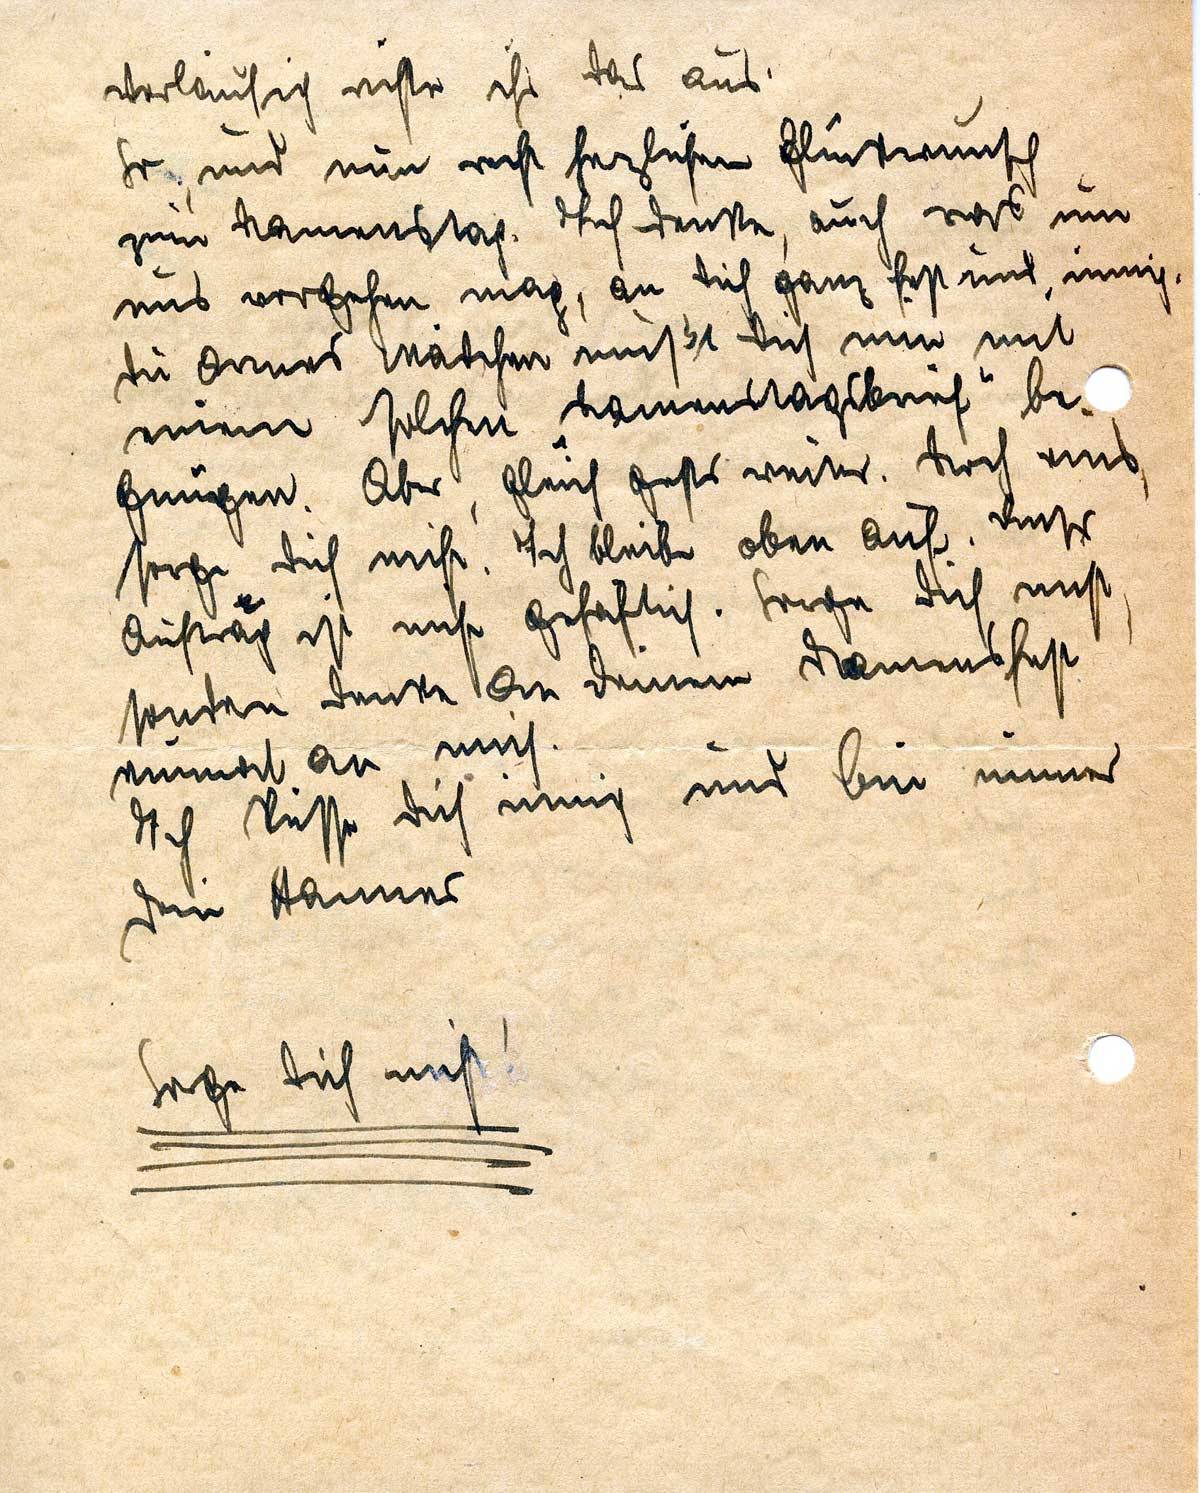 vorläufig reicht ihr das aus.
So, und nun recht herzlichen Glückwunsch
zum Namenstag. Ich denke, auch was um
uns vorgehen mag, an dich ganz fest und innig.
du armes Mädchen mußt dich nun mit
einem solchen „Namenstagsbrief" be-
gnügen. Aber, gleich gehts weiter. Doch eins,
sorge dich nicht. Ich bleibe oben auf.
Aufträg ist nicht gefährlich. Sorge dich nicht,
sondern denke an deinem Namensfest
einmal an mich.
Ich küsse dich innig und bin immer
dein Hannes
Sorge dich nicht!